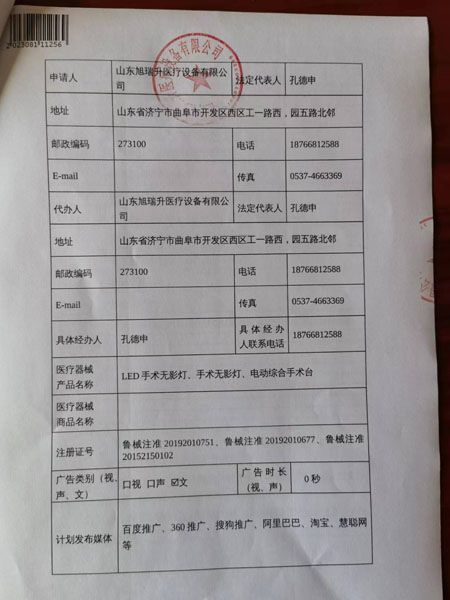 2023081 11256
设备有限公司
申请人 山东旭瑞升医疗设备有限公
司 法定代表人 孔德申
地址 山东省济宁市曲阜市开发区西区工一路西，园五路北邻
邮政编码 273100 电话 18766812588
E-mail 传真 0537-4663369
代办人 山东旭瑞升医疗设备有限公
司 法定代表人 孔德申
地址 山东省济宁市曲阜市开发区西区工一路西，园五路北邻
邮政编码 273100 电话 18766812588
E-mail 传真 0537-4663369
具体经办人 孔德申 具体经办
人联系电话 18766812588
医疗器械
产品名称 LED 手术无影灯、手术无影灯、电动综合手术台
医疗器械
商品名称
注册证号 鲁械注准 20192010751、鲁械注准 20192010677、鲁械注准
20152150102
广告类别（视、
声、文） 口视 口声 ☑文 广告时长
（视、声） 0 秒
计划发布媒体 百度推广、360 推广、搜狗推广、阿里巴巴、淘宝、慧聪网
等